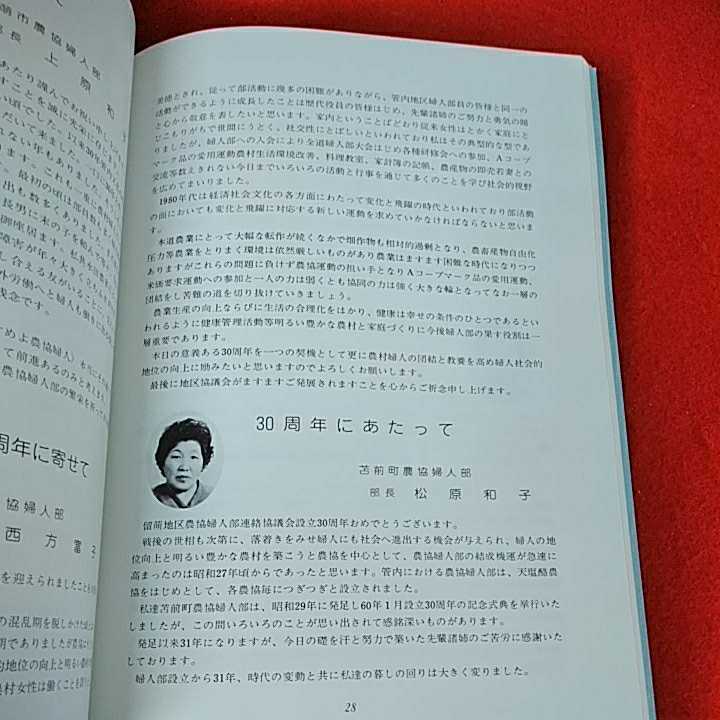 美徳とされ、従って部活動に幾多の困難がありながら、管内地区婦人部員の皆様と同一の
活動ができるように成長したことは歴代役員の皆様はじめ、先輩諸姉のご努力と勇気の賜
と心から敬意を表したいと思います。家内ということばどおり従来女性はとかく家庭にと
じこもりがちで世間にうとく、社交性にとぼしいといわれており私はその典型的な型であ
りましたが、婦人部への入会により全道婦人部大会はじめ各種研修会への参加、Aコープ
マーク品の愛用運動農村生活環境改善、料理教室、家計簿の記帳、農産物の即売若妻との
交流等数えきれない今日までいろいろの活動と行事を通じて多くのことを学び社会的視野
を広めてまいりました。
1980年代は経済社会文化の各方面にわたって変化と飛躍の時代といわれており部活動
の面においても変化と飛躍に対応する新しい運動を求めていかなければならないと思いま
す。
本道農業にとって大幅な転作が続くなかで畑作物も相対的過剰となり、農畜産物自由化
圧力等農業をとりまく環境は依然厳しいものがあり農業はますます困難な時代になりつつ
ありますがこれらの問題に負けず農協運動の担い手となりAコープマーク品の愛用運動、
米価要求運動への参加と一人の力は弱くとも協同の力は強く大きな輪となってなお一層の
団結をし苦難の道を切り抜けていきましょう。
農業生産の向上ならびに生活の合理化をはかり、健康は幸せの条件のひとつであるとい
われるように健康管理活動等明るい豊かな農村と家庭づくりに今後婦人部の果す役割は一
層重要であります。
本日の意義ある30周年を一つの契機として更に農村婦人の団結と教養を高め婦人社会的
地位の向上に励みたいと思いますのでよろしくお願いします。
最後に地区協議会がますますご発展されますことを心からご祈念申し上げます。
30周年にあたって
苫前町農協婦人部
部長 松原和子
留萌地区農協婦人部連絡協議会設立30周年おめでとうございます。
戦後の世相も次第に、落着きをみせ婦人にも社会へ進出する機会が与えられ、婦人の地
位向上と明るい豊かな農村を築こうと農協を中心として、農協婦人部の結成機運が急速に
高まったのは昭和27年頃からであったと思います。管内における農協婦人部は、天塩酪農
協をはじめとして、各農協毎につぎつぎと設立されました。
私達苫前町農協婦人部は、昭和29年に発足し60年1月設立30周年の記念式典を挙行いた
しましたが、この間いろいろのことが思い出されて感銘深いものがあります。
発足以来31年になりますが、今日の礎を汗と努力で築いた先輩諸姉のご苦労に感謝いた
しております。
婦人部設立から31年、時代の変動と共に私達の暮しの回りは大きく変りました。
28
萌市農協婦人部
部長 上原和
周年に寄せて
協婦人部
西方富子
を迎えられましたこと
の混乱期を脱しかけた